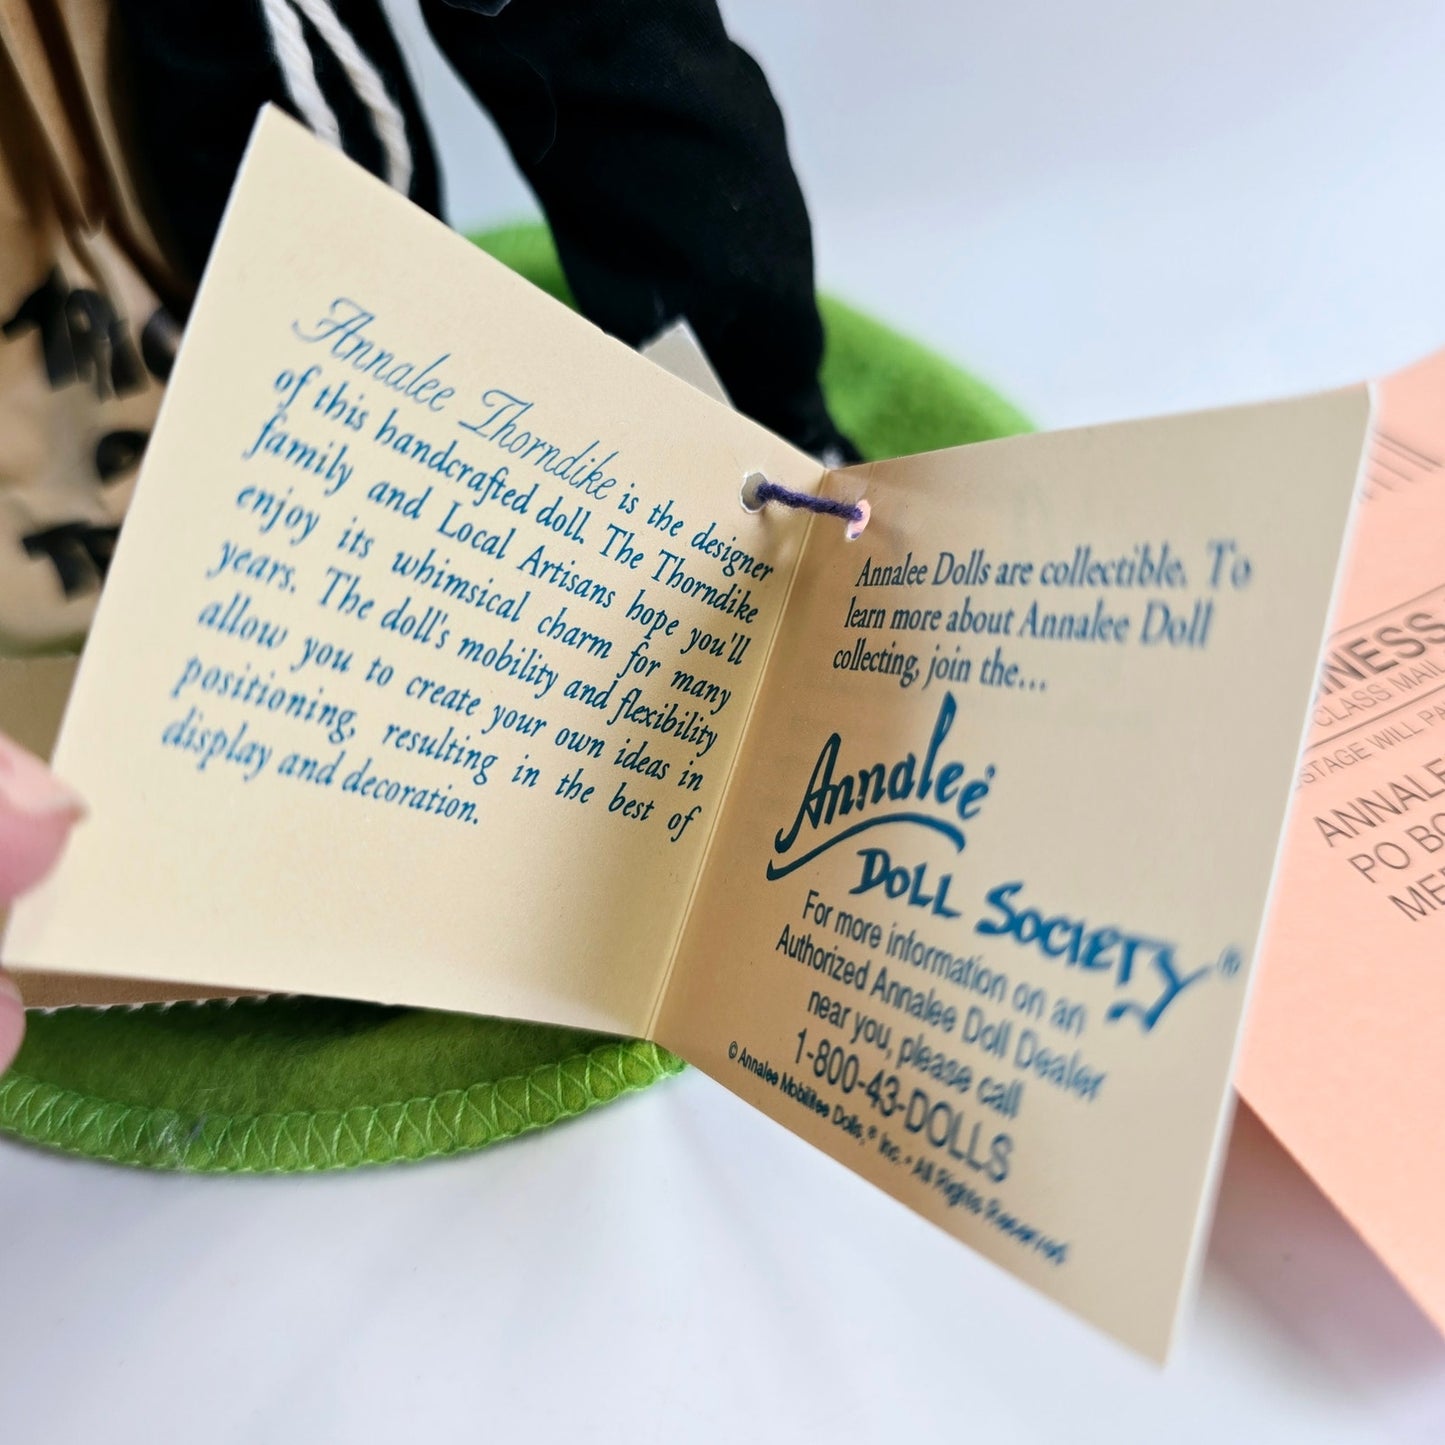 TRIC
O
TR
Annalee Thorndike is the designer
of this handcrafted doll. The Thorndike
family and Local Artisans hope you'll
enjoy its whimsical charm for many
years. The doll's mobility and flexibility
allow you to create your own ideas in
positioning, resulting in the best of
display and decoration.
Annalee Dolls are collectible. To
learn more about Annalee Doll
collecting, join the...
Annalee
DOLL SOCIETY®
For more information on an
Authorized Annalee Doll Dealer
near you, please call
1-800-43-DOLLS
© Annalee Mobilitee Dolls,® Inc. • All Rights Reserved
CLASS MAIL
WILL
ANNALE
PO BO
ME